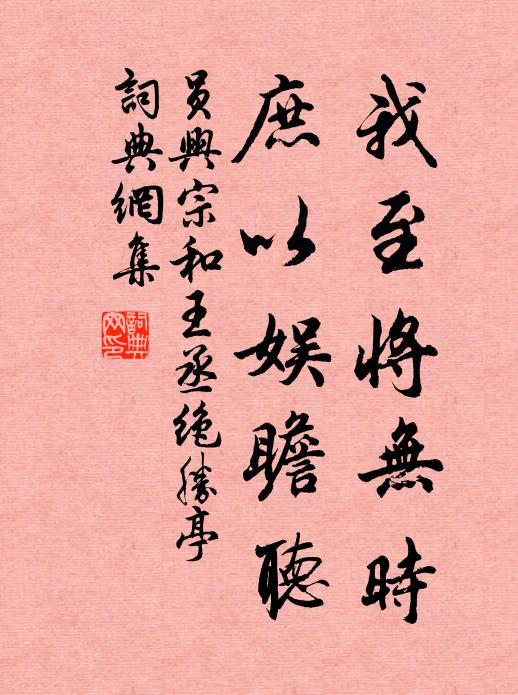 我至將無時
庶以娱瞻聽
員興宗和王丞絶勝亭
詞典網集
詞典
网印